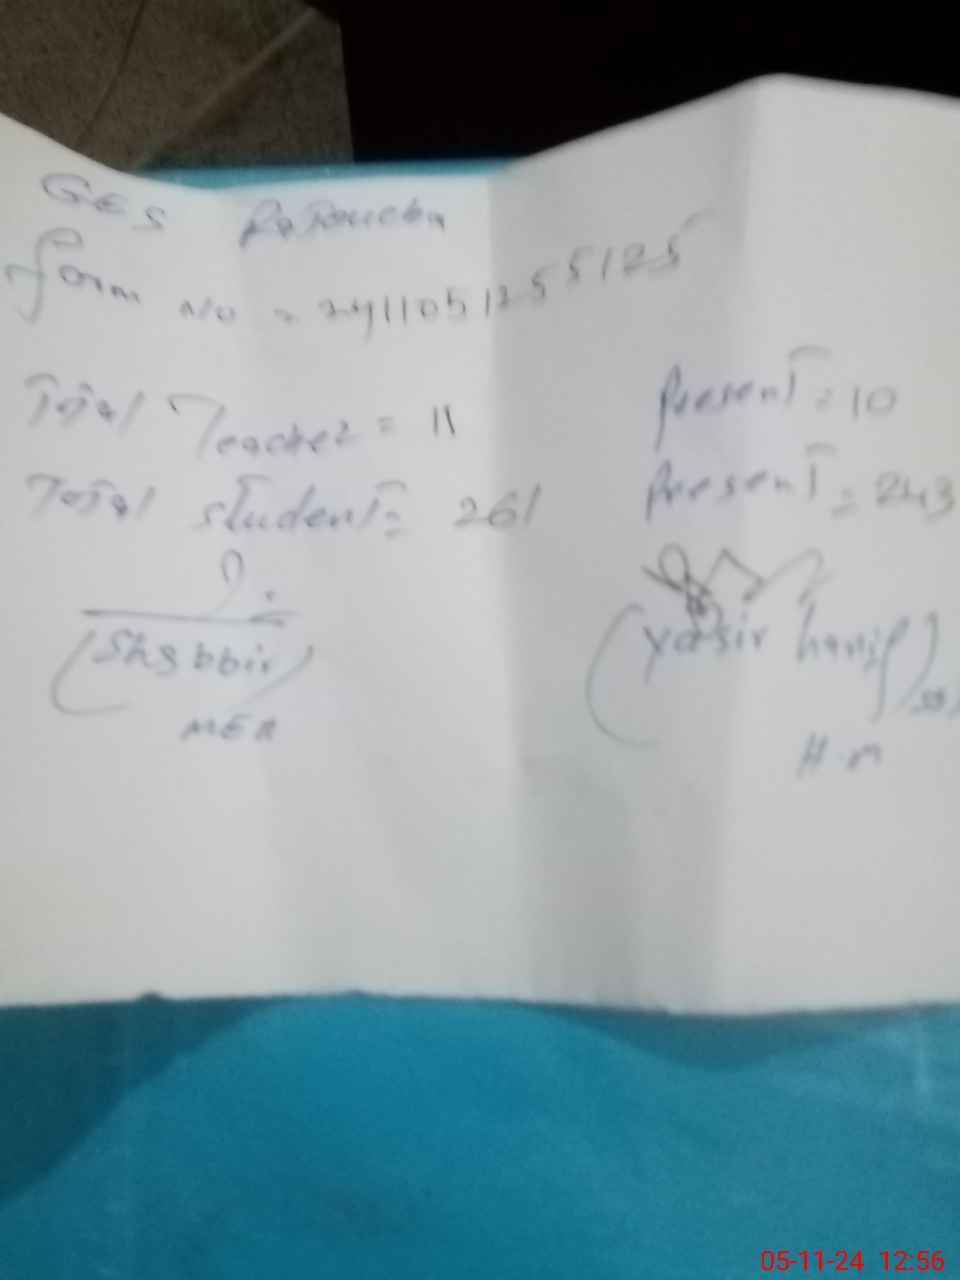 GES
Form No = 2411051255125
Total Teacher = 11 Present = 10
Total Student = 261 Present = 243
(Shabbir) (Yasir hanif)
MEA H.M
05-11-24 12:56